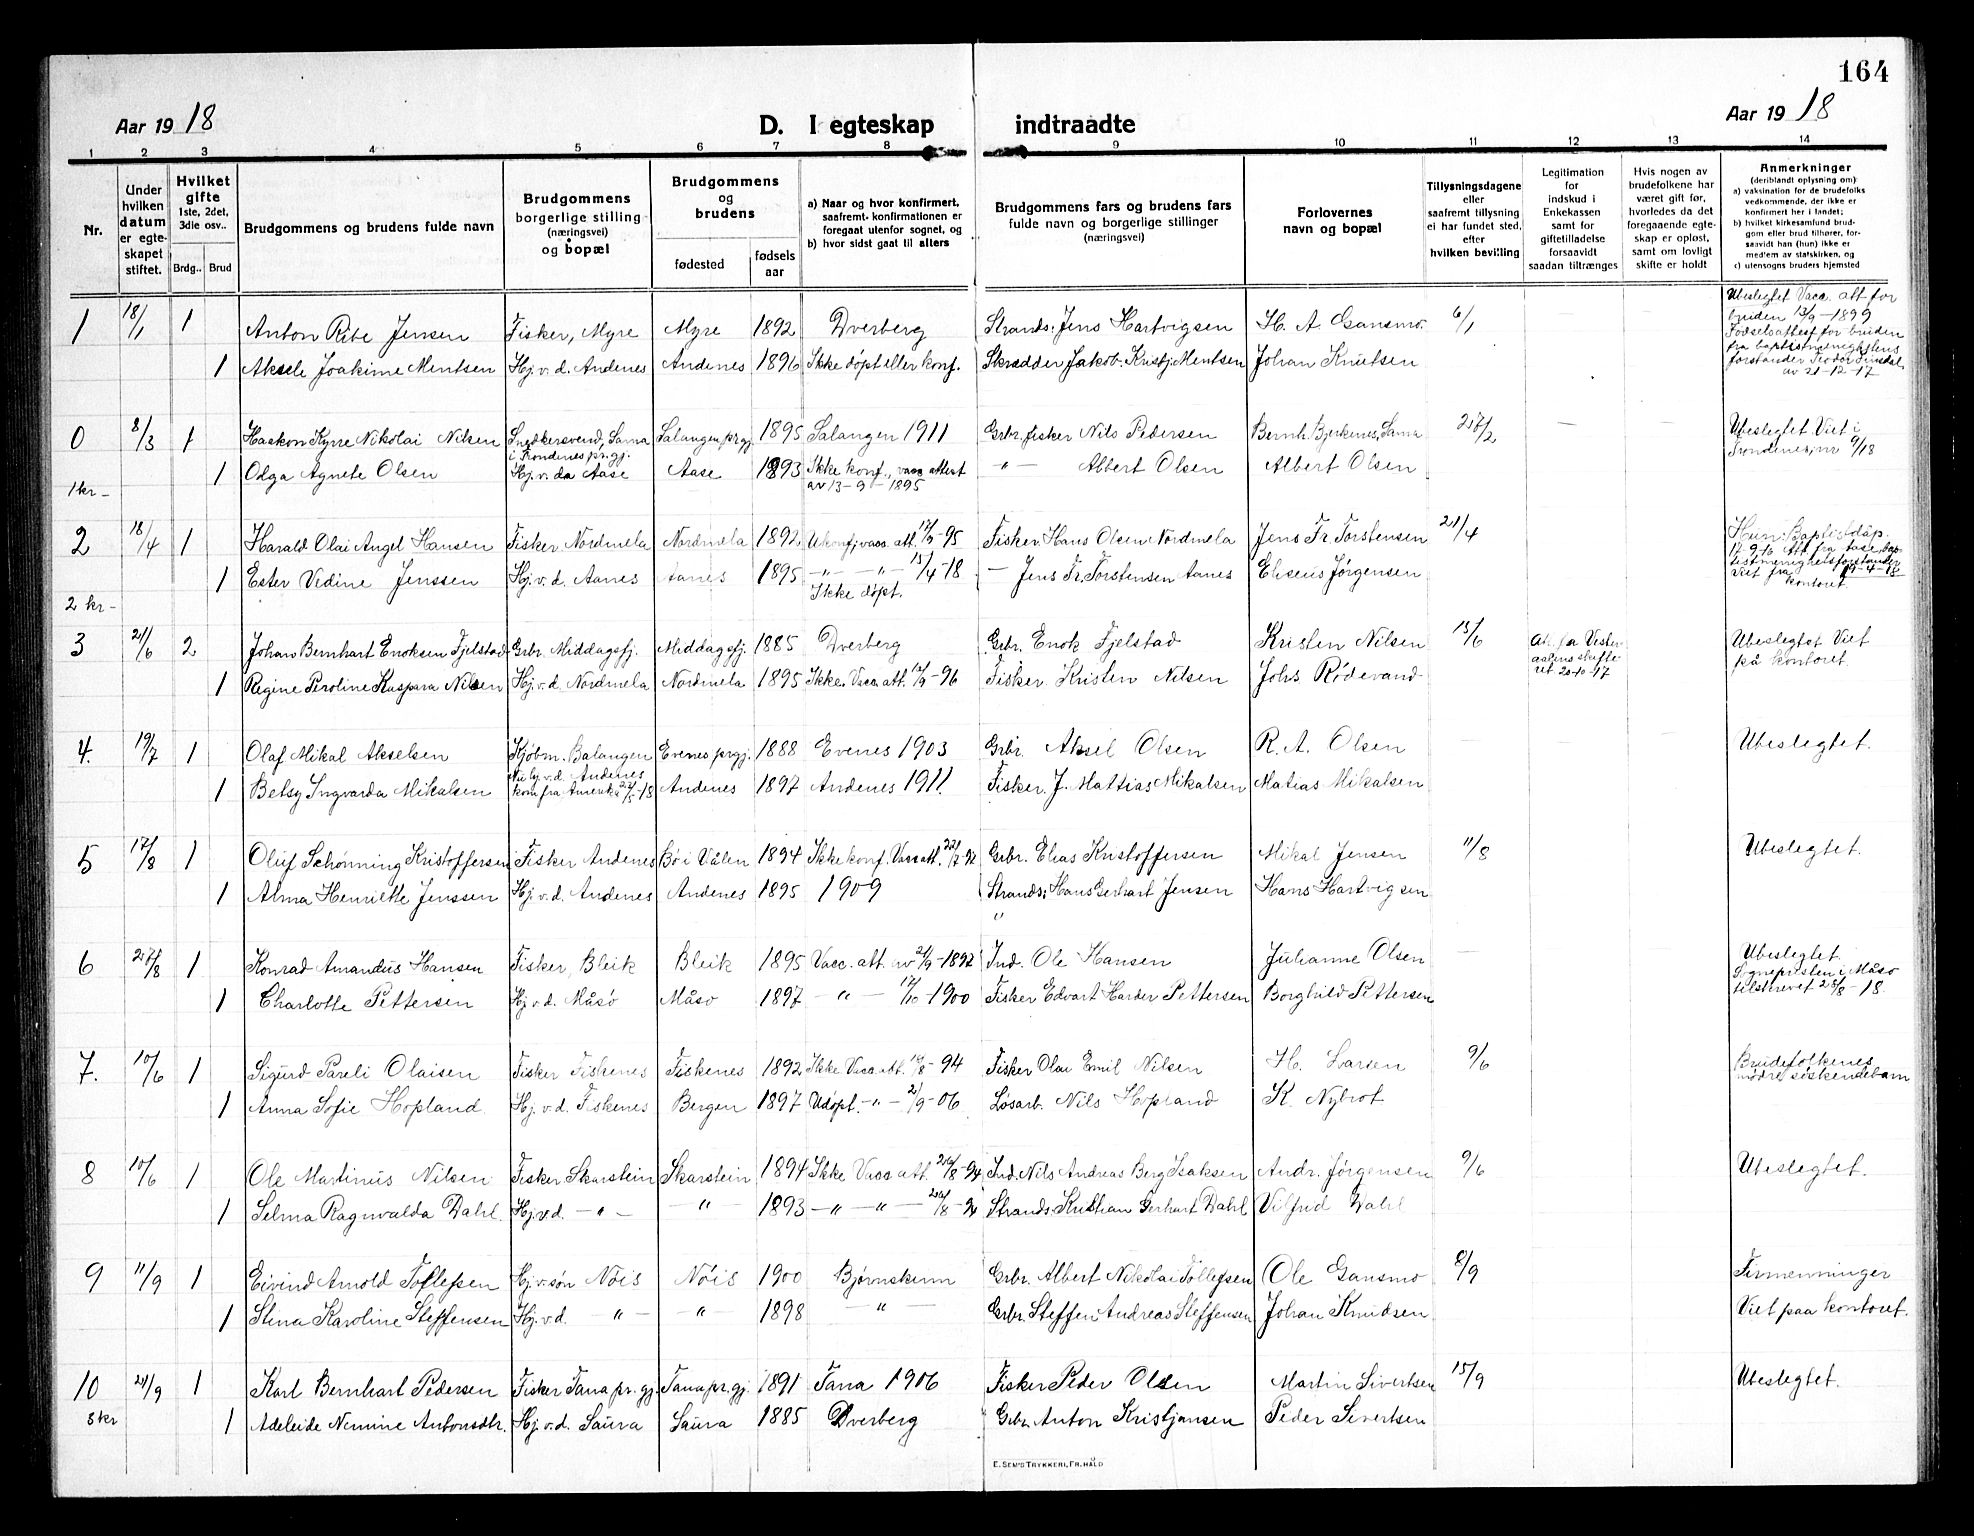 164
Aar 1918
D. I egteskap indtraadte
Aar 1918
1 2 3 4 5 6 7 8 9 10 11 12 13 14
Nr.
Under hvilken datum er egteskapet stiftet.
Hvilket gifte 1ste, 2det, 3die osv..
Brdg.. Brud
Brudgommens og brudens fulde navn
Brudgommens borgerlige stilling (næringsvei) og bopæl
Brudgommens og brudens
fødested
fødsels aar
a) Naar og hvor konfirmert, saafremt konfirmationen er foregaat utenfor sognet, og
b) hvor sidst gaat til alters
Brudgommens fars og brudens fars fulde navn og borgerlige stillinger (næringsvei)
Forlovernes navn og bopæl
Tillysningsdagene eller saafremt tillysning ei har fundet sted, efter hvilken bevilling
Legitimation for indskud i Enkekassen samt for giftetilladelse forsaavidt saadan tiltrænges
Hvis nogen av brudefolkene har været gift før, hvorledes da det foregaaende egteskap er opløst, samt om lovligt skifte er holdt
Anmerkninger (deriblandt oplysning om)
a) vaksination for de brudefolks vedkommende, der ikke er konfirmert her i landet;
b) hvilket kirkesamfund brudgom eller brud tilhører, forsaavidt han (hun) ikke er medlem av statskirken, og
c) utensogns bruders hjemsted
1 18/1 1 Anton Ribe Jensen Fisker, Myre Myre 1892 Dverberg Strands. Jens Hartvigsen H. A. Gansmo. 6/1 Ubeslegtet Vacc. att for bruden 13/9-1899 Fødselsattest for bruden fra baptistmenighetens forstander av 21-12-17
1 Aksele Joakime Mentsen Hj. v. d. Andenes Andenes 1896 Ikke døpt eller konf. Skrædder Jakob Kristj. Mentsen Johan Knutsen
0 8/3 1 Haakon Kyrre Nikolai Nilsen Snedkersvend, Sama i Trondenes pr.gj. Salangen pr.gj. 1895 Salangen 1911 Grbr. fisker Nils Pedersen Bernh. Bjerkenes, Sama 27/2 Ubeslegtet Viet i Trondenes, nr 9/18
1 Olga Agnete Olsen Hj. v. da Aase Aase 1893 Ikke konf., vacc attest av 13-9-1895 " Albert Olsen Albert Olsen
1 kr -
2 18/4 1 Harald Olai Angel Hansen Fisker Nordmela Nordmela 1892 Ukonf. vacc. att. 17/9-95 Fisker Hans Olsen Nordmela Jens Fr. Torstensen 21/4
1 Ester Vedine Jenssen Hj. v. d. Aanes Aanes 1895 - " - " - 15/4-18 Ikke døpt. - Jens Fr. Torstensen Aanes Eliseus Jørgensen kontoret
2 kr -
3 21/6 2 Johan Bernhart Enoksen Fjelstad Grbr. Middagsfj. Middagsfj. 1885 Dverberg Grbr. Enok Fjelstad Kristen Nilsen 15/6 At. fra Vesteraalens skifteret 20-10-17 Ubeslegtet Viet på kontoret.
1 Regine Peroline Kaspara Nilsen Hj. v. d. Nordmela Nordmela 1895 Ikke. Vacc. att. 12/9-96 Fisker Kristen Nilsen Johs Rødevand
4. 19/7 1 Olaf Mikal Akselsen Kjøbm. Balangen Evenes prgj. 1888 Evenes 1903 Grbr. Aksel Olsen R. A. Olsen Ubeslegtet.
1 Betsy Ingvarda Mikalsen Andenes kom fra Amerika Andenes 1897 Andenes 1911. Fisker. J. Mattias Mikalsen Matias Mikalsen
5 17/8 1 Oluf Schønning Kristoffersen Fisker Andenes Bø i Vålen 1894 Ikke konf. Vacc att. Grbr. Elias Kristoffersen Mikal Jensen 11/8 Ubeslegtet.
1 Alma Henriette Jenssen Hj. v. d. Andenes Andenes 1895 1909 Strands: Hans Gerhart Jensen Hans Hartvigsen
6 27/8 1 Konrad Amandus Hansen Fisker, Bleik Bleik 1895 Vacc. att. av 21/9-1897 Ind. Ole Hansen Julianne Olsen Ubeslegtet. Sognepresten i Måsø tilskrevet 28/8-18.
1 Charlotte Pettersen Hj v. d. Måsø Måsø 1897 - " - 17/10-1900 Fisker Edvart Harder Pettersen Borghild Pettersen
7. 10/6 1 Sigurd Pareli Olaisen Fisker Fiskenes Fiskenes 1892 Ikke Vacc att. 12/8-94 Fisker Olai Emil Nilsen H. Larsen 9/6 Brudefolkenes mødre søskendebarn
1 Anna Sofie Hopland Hj. v. d. Fiskenes Bergen 1897 Udøpt. - " - 21/9-06 Løsarb. Nils Hopland K. Nybrot
8 10/6 1 Ole Martinus Nilsen Fisker Skarstein Skarstein 1894 Ikke Vacc att. 20/8-94 Ind. Nils Andreas Berg Isaksen Andr. Jørgensen 9/6 Ubeslegtet.
1 Selma Ragnvalda Dahl. Hj. v d. - " - - " - 1893 - " - " - 20/8-94 Strands. Kristian Gerhart Dahl Vilfrid Dahl
9 11/9 1 Eivind Arnold Tollefsen Hj. v. søn Nöis Nöis 1900 Bjørnskinn Grbr. Albert Nikolai Tollefsen Ole Gansmo 8/9 Firmenninger
1 Stina Karoline Steffensen Hj. v d. - " - - " - 1898 - " - Grbr. Steffen Andreas Steffensen Johan Knudsen Viet paa kontoret.
10 21/9 1 Karl Bernhart Pedersen Fisker Tana pr. gj. Tana pr. gj. 1891 Tana 1906 Fisker Peder Olsen Martin Sivertsen 15/9 Ubeslegtet.
3 kr 1 Adeleide Nemine Antonsdtr. Hj. v. d. Saura Saura 1885 Dverberg Grbr. Anton Kristjansen Peder Sivertsen
E. SEM'S TRYKKERI, FR. HALD